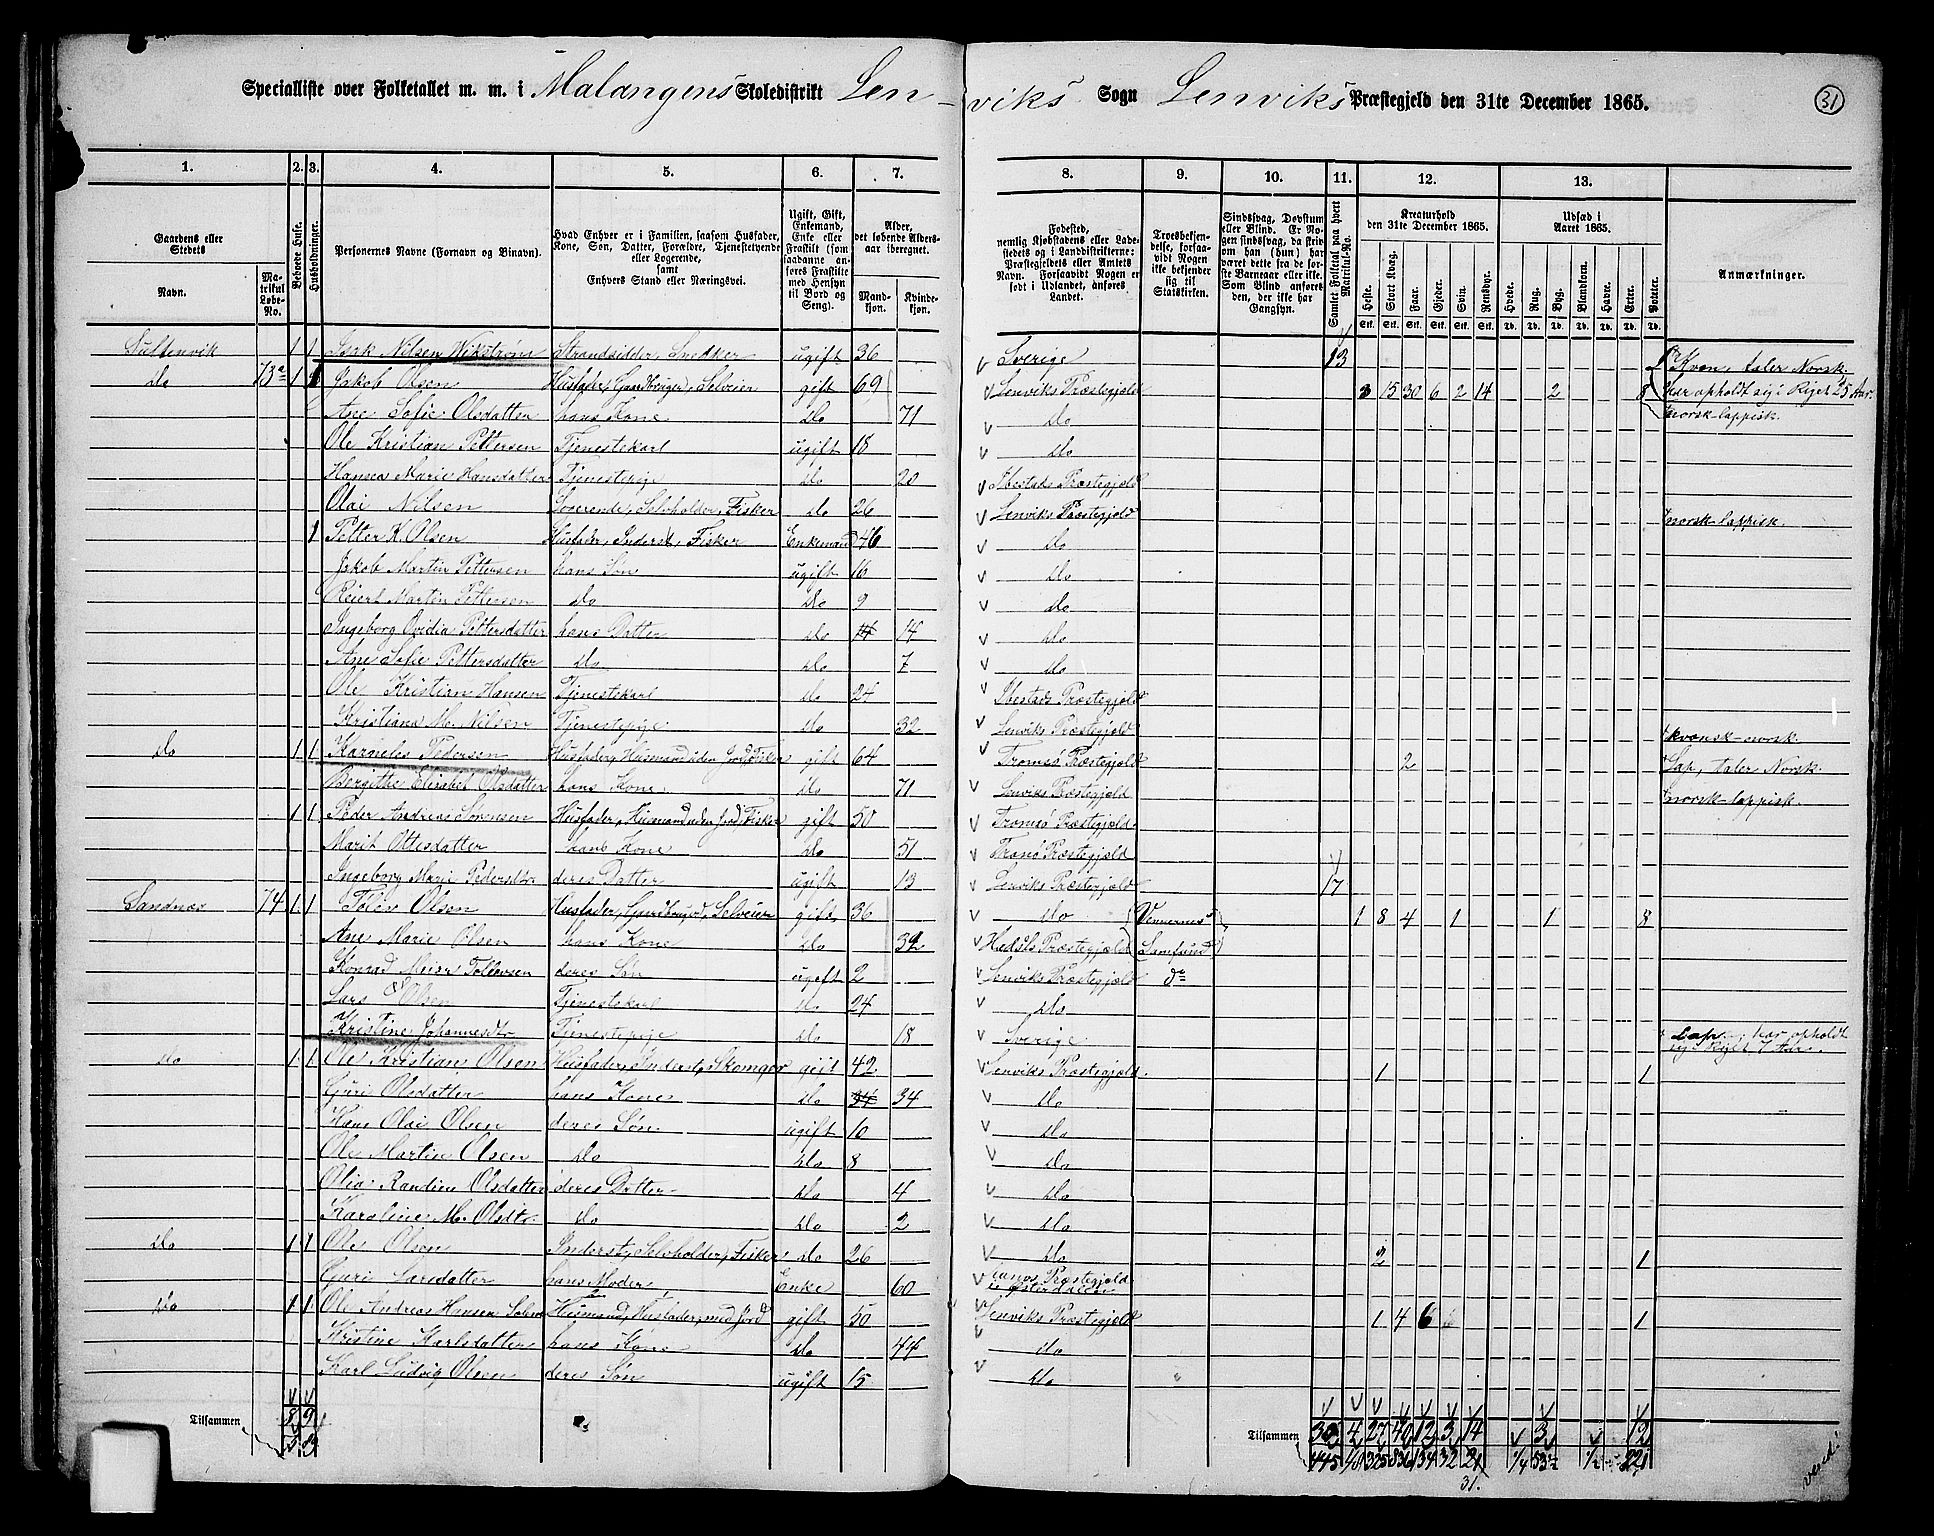 Specialliste over Folketallet m. m. i Malangens Skoledistrikt Lenviks Sogn Lenviks Præstegjeld den 31te December 1865.
31
1. 2. 3. 4. 5. 6. 7. 8. 9. 10. 11. 12. 13.
Gaardens eller Stedets
Navn.
Matrikul Løbe-No.
Beboede Huse.
Husholdninger.
Personernes Navne (Fornavn og Binavn).
Hvad Enhver er i Familien, saasom Husfader, Kone, Søn, Datter, Forældre, Tjenestetyende eller Logerende, samt Enhvers Stand eller Næringsvei.
Ugift, Gift, Enkemand, Enke eller Fraskilt (som saadanne anføres Fraskilte med Hensyn til Bord og Seng).
Alder, det løbende Aldersaar iberegnet.
Mandkjøn.
Kvindekjøn.
Fødested, nemlig Kjøbstadens eller Ladestedets og i Landdistrikterne: Præstegjeldets eller Amtets Navn. Forsaavidt Nogen er født i Udlandet, anføres Landet.
Troesbekjendelse, forsaavidt Nogen ikke bekjender sig til Statskirken.
Sindssvag, Døvstum eller Blind. Er Nogen sindssvag, da skrives om han (hun) har været dette fra de første Barneaar eller ikke. Som Blind anføres den, der ikke har Gangsyn.
Samlet Folketal paa hvert Matrikul-No.
Kreaturhold den 31te December 1865.
Heste. Stort Kvæg. Faar. Gjeder. Svin. Rensdyr.
Udsæd i Aaret 1865.
Hvede. Rug. Byg. Blandkorn. Havre. Erter. Poteter.
Anmærkninger.
Sultenvik 1 1 Isak Nilsen Wikstrøm Strandsidder, Snedker ugift 36 Sverige 13 Kvæn, taler Norsk.
Do 73a 1 Jakob Olsen Husfader, Gaardbruger, Selveier gift 69 Lenviks Præstegjeld 3 15 30 6 2 14 2 8 Har opholdt sig i Riget 25 Aar.
Ane Sofie Olsdatter hans Kone Do 71 Do norsk-lappisk.
Ole Kristian Pettersen Tjenestekarl ugift 18 Do
Hansea Marie Hansdatter Tjenestepige Do 20 Ibestads Præstegjeld
Olai Nilsen Logerende, Selvholder, Fisker Do 26 Lenviks Præstegjeld norsk-lappisk.
1 Petter K. Olsen Husfader, Inderst, Fisker Enkemand 46 Do
Jakob Martin Pettersen hans Søn ugift 16 Do
Reiert Martin Pettersen Do Do 9 Do
Ingeborg Ovidia Pettersdatter hans Datter Do 14 Do
Ane Sofie Pettersdatter Do Do 7 Do
Ole Kristian Hansen Tjenestekarl Do 24 Ibestads Præstegjeld
Kristiana M. Nilsen Tjenestepige Do 32 Lenviks Præstegjeld kvænsk-norsk.
Do 1 1 Karnelis Pedersen Husfader, Husmand uden Jord, Fisker gift 64 Tromsø Præstegjeld 2 Lap, taler Norsk.
Bergithe Elisabet Olsdatter hans Kone Do 71 Lenviks Præstegjeld norsk-lappisk.
1 1 Peder Andreas Sørensen Husfader, Husmand uden Jord, Fisker gift 50 Tromsø Præstegjeld
Marit Ottesdatter hans Kone Do 51 Tranø Præstegjeld
Ingeborg Marie Pedersdtr deres Datter ugift 13 Lenviks Præstegjeld 17
Sandnæs 74 1 1 Tolev Olsen Husfader, Gaardbruger, Selveier gift 36 Do Vennernes 1 8 4 1 1 8
Ane Marie Olsen hans Kone Do 32 Præstegjeld Samfund
Konrad Meier Tollevsen deres Søn ugift 2 Lenviks Præstegjeld do
Lars Olsen Tjenestekarl Do 24 Do
Kristine Johannesdtr Tjenestepige Do 18 Sverige Lap, har opholdt sig i Riget 7 Aar.
Do 1 1 Ole Kristian Olsen Husfader, Inderst, Skomager gift 42 Lenviks Præstegjeld 1 1
Guri Olsdatter hans Kone Do 34 Do
Hans Olai Olsen deres Søn ugift 10 Do
Ole Martin Olsen Do Do 8 Do
Olia Randine Olsdatter deres Datter Do 4 Do
Karoline M. Olsdtr. Do Do 2 Do
Do 1 1 Ole Olsen Inderst, Selvholder, Fisker Do 26 Do 2 1
Guri Larsdatter hans Moder Enke 60 Præstegjeld i Østerdalen
Do 1 1 Ole Andreas Hansen Husmand, Husfader, med Jord gift 50 Lenviks Præstegjeld 1 4 6 1
Kristine Karlsdatter hans Kone Do 44 Do
Karl Ludvig Olsen deres Søn ugift 15 Do
Tilsammen 8 9 Tilsammen 4 27 40 12 3 14 3 12
445
31.